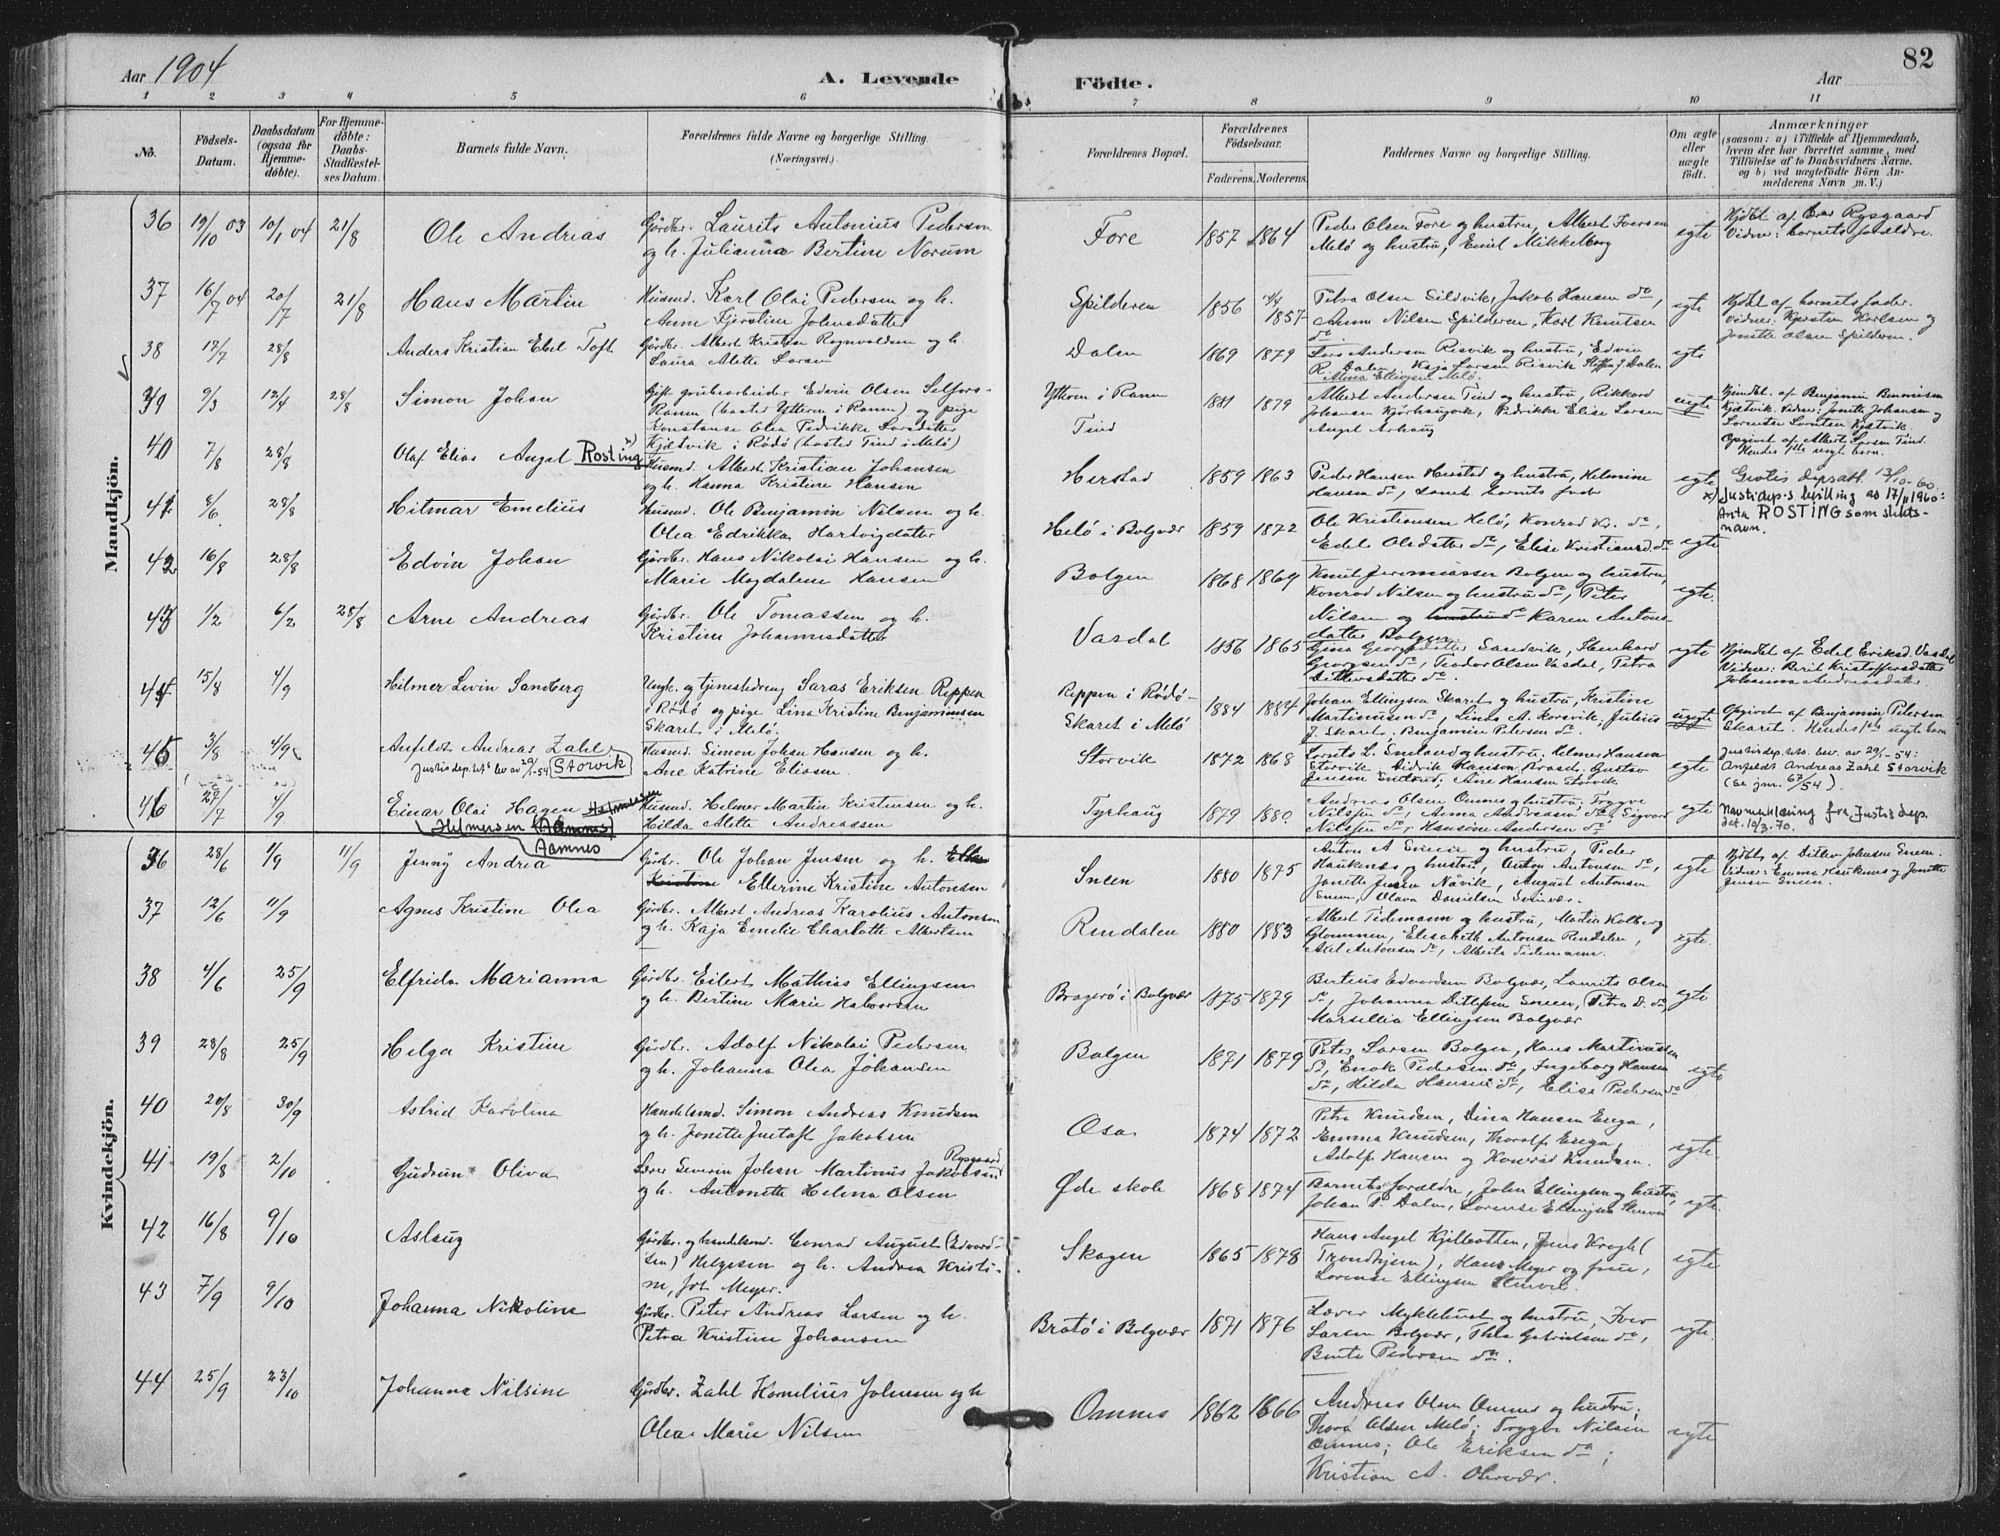 Aar 1904
A. Levende
Födte.
Aar
82
1 2 3 4 5 6 7 8 9 10 11
No.
Födsels-
Datum.
Daabsdatum
(ogsaa for
Hjemme-
døbte).
For Hjemme-
døbte:
Daabs-
Stadfæstel-
ses Datum.
Barnets fulde Navn.
Forældrenes fulde Navne og borgerlige Stilling.
(Næringsvei.)
Forældrenes Bopæl.
Forældrenes
Födselsaar.
Faderens. Moderens.
Faddernes Navne og borgerlige Stilling.
Om ægte
eller
uægte
født.
Anmærkninger
(saasom: a) i Tilfælde af Hjemmedaab,
hvem der har forrettet samme, med
Tilföielse af to Daabsvidners Navne.
og b) ved uægtefödte Börn An-
melderens Navn m. V.)
Mandkjön.
36 19/10 03 10/1 04 21/8 Ole Andreas Gårdbr. Laurits Antonius Pedersen
og h. Julianna Bertine Norum
Fore 1857 1864 Peder Olsen Fore og hustru, Albert Iversen
Melö og hustru, Emil Mikkelborg
egte
Hjdbt af Rysgaard
Vidner: barnets forældre.
37 16/7 04 20/7 21/8 Hans Martin Husmd. Karl Olai Pedersen og h.
Anne Kjerstine Johnsdatter
Spilderen 1856 1857 Petra Olsen Sildvik, Jakob Hansen do,
Anne Nilsen Spilderen, Karl Knutsen
do
egte
Hjdbt af barnets fader.
Vidner: Kjersten Karlsen og
Jonette Olsen Spilderen.
38 17/7 28/8 Anders Kristian Ebel Toft Gårdbr. Albert Kristian Rognvaldsen og h.
Laura Alette Larsen
Dalen 1869 1879 Lars Andersen Risvik og hustru, Edvin
R. Dalen, Kaja Larsen Risvik, Steffen J. Dalen
Alma Ellingsen Melö.
egte
39 9/3 12/4 28/8 Simon Johan Gift grubearbeider Edvin Olsen Selfors-
Ranen (bosted Ytteren i Ranen) og pige
Konstanse Olea Fedrikke Larsdatter
Kjætvik i Rødö (bosted Tind i Melö)
Ytteren i Ranen
Tind
1881 1879 Albert Andersen Tind og hustru, Rikkard
Johansen Kjörhaugvik, Fedrikke Elise Larsen
Angel Arhaug
uegte
Hjemdbt. af Benjamin Benonisen
Kjætvik. Vidner: Jonette Johansen og
Lorentse Lorntsen Kjætvik
Opgivet af Albert Larsen Tind.
Hendes 1ste uegte barn.
40 7/8 28/8 Olaf Elias Angel Rosting x)
Husmd. Albert Kristian Johansen
og h. Hanna Kristine Hansen
Herstad 1859 1863 Peder Hansen Herstad og hustru, Helmine
Hansen do, samt barnets fader
egte
Gratis depsatt. 13/10-60.
x) Justidep.s bevilling av 17/11 1960:
Anta ROSTING som slekts-
navn.
41 8/6. 28/8 Hilmar Emelius Husmd. Ole Benjamin Nilsen og h.
Olea Edrikke Hartvigdatter
Helö i Bolgvær 1859 1872 Ole Kristiansen Helö, Konrad K. do,
Edel Olsdatter do, Elise Kristiansd. do
egte
42 16/8 28/8 Edvin Johan Gårdbr. Hans Nikolai Hansen og h.
Marie Magdalene Hansen
Bolgen 1868 1864 Knut Jeremiassen Bolgen og hustru,
Konrad Nilsen og hustru do, Peter
Nilsen og hustru do Karen Antons-
datter Bolgen.
egte.
43 1/2 6/2 28/8 Arne Andreas Gårdbr. Ole Tomassen og h.
Kristine Johannesdatter
Vasdal 1856 1865 Gina Georgsdatter Sandvik, Henhard
Georgsen do, Teodor Olsen Vasdal, Petra
Ditlevsdatter do.
egte
Hjemdbt af Edel Eriksd. Vasdal
Vidner: Berit Kristoffersdatter
Johanna Andreasdatter
44 15/8 4/9 Hilmer Levin Sandberg Ungk. og tjenestedreng Saras Eriksen Reppen
i Rødö og pige Lina Kristine Benjaminsen
Skaret i Melö.
Reppen i Rødö-
Skaret i Melö
1884 1884 Johan Ellingsen Skaret og hustru, Kristine
Martinusen do, Linds A. Korsvik, Julius
J. Skaret. Benjamin Petersen do.
uegte
Opgivet af Benjamin Petersen
Skaret. Hendes 1ste uegte barn
45 3/8 4/9 Anfeldt Andreas Zahl
Justisdep.tets bev av 29/1-54 Storvik
Husmd. Simon Johan Hansen og h.
Ane Katrine Eliasen
Storvik 1872 1868 Lornts L. Smeland og hustru, Helmer Hansen
Storvik, Didrik Hansen Braset, Gustav
Jensen Smelrud, Aine Hansen Storvik
egte
Justisdep.tets. bev. av 29/1-54:
Anfeldt Andreas Zahl Storvik
(se jnr. 67/54)
46 27/7 4/9 Einar Olai Hagen Helmersen
Helmersen (Aamnes)
Aamnes
Husmd. Helmer Martin Kristensen og h.
Hilda Alette Andreassen
Tyrhaug 1879 1880 Andreas Olsen Omnes og hustru, Trygve
Nilsen do, Anna Andreasen do, Sigvart
Nilsen do, Hansine Andersen do.
egte
Navnemelding fra Justisdep.
det 10/3.70.
Kvindekjön.
36 28/6 1/9 11/9 Jenny Andrea Gårdbr. Ole Johan Jensen og h. Ellen
Kristine Ellerine Kristine Antonsen
Sneen 1880 1875 Anton A Sneen og hustru, Peder
Haukenes og hustru, Anton Antonsen do,
Jonette Jensen Nåvik, August Antonsen
Sneen, Olava Danielsen Svinvær.
egte
Hjdbt. af Ditlev Johnsen Sneen.
Vidner: Emma Haukenes og Jonette
Jensen Sneen.
37 12/6 11/9 Agnes Kristine Olea Gårdbr. Albert Andreas Karolius Antonsen
og h. Kaja Emelie Charlotte Albertsen
Rendalen 1880 1883 Albert Tidemann og hustru, Martin Kolberg
Glommen, Elisabeth Antonsen Rendalen,
Axel Antonsen do, Alberta Tidemann.
egte.
38 4/6 25/9 Elfrida Marianna Gårdbr. Eilert Mathias Ellingsen
og h. Bertine Marie Halvorsen
Bragerö i Bolgvær 1875 1879 Bertius Edvardsen Bolgvær, Laurits Olsen
do, Johanna Ditlefsen Sneen, Petra D. do
Marsellia Ellingsen Bolgvær
egte
39 28/8 25/9 Helga Kristine Gårdbr. Adolf Nikolai Pedersen
og h. Johanna Olea Johansen
Bolgen 1871 1879 Peter Larsen Bolgen, Hans Martinussen
do, Enok Pedersen do, Ingeborg Hansen
do, Hilda Hansen do, Elise Pedersen do
egte
40 20/8 30/9 Astrid Karolina Handelsmd. Simon Andreas Knudsen
og h. Jonette Justaft Jakobsen
Osa 1874 1872 Petra Knudsen, Dina Hansen Esega,
Emma Knudsen, Thoralf Esega,
Adolf Hansen og Konrad Knudsen.
egte.
41 19/8 2/10 Gudrun Oliva Lærer Severin Johan Martinus Jakobsen Rysgaard
og h. Antonette Helena Olsen
Øde skole 1868 1874 Barnets forældre, John Ellingsen og hustru,
Johan P. Dalen, Lorense Ellingsen Stenvör
egte.
42 16/8 9/10 Aslaug Gårdbr. og handelsmd. Conrad August (Edvard-
sen) Helgesen og h. Andrea Kristi-
ne, før Meyer.
Skogen 1865 1878 Hans Angel Kjilbotten, Jens Krogh (
Trondhjem), Hans Meyer og frue,
Lorense Ellingsen Stenvör.
egte
43 7/9 9/10 Johanna Nikoline Gårdbr. Peter Andreas Larsen og h.
Petra Kristine Johansen
Bratö i Bolgvær 1871 1876 Lærer Myklebust og hustru, Iver
Larsen Bolgvær, Thea Gabrielsen do,
Bente Pedersen do.
egte.
44 25/9 23/10 Johanna Nilsine Gårdbr. Zahl Kornelius Johnsen og h
Olea Marie Nilsen
Omnes 1862 1866 Andreas Olsen Omnes og hustru;
Thora Olsen Melö; Trygve Nilsen
Omnes; Ole Eriksen do;
Kristian A. Olsvær.
egte